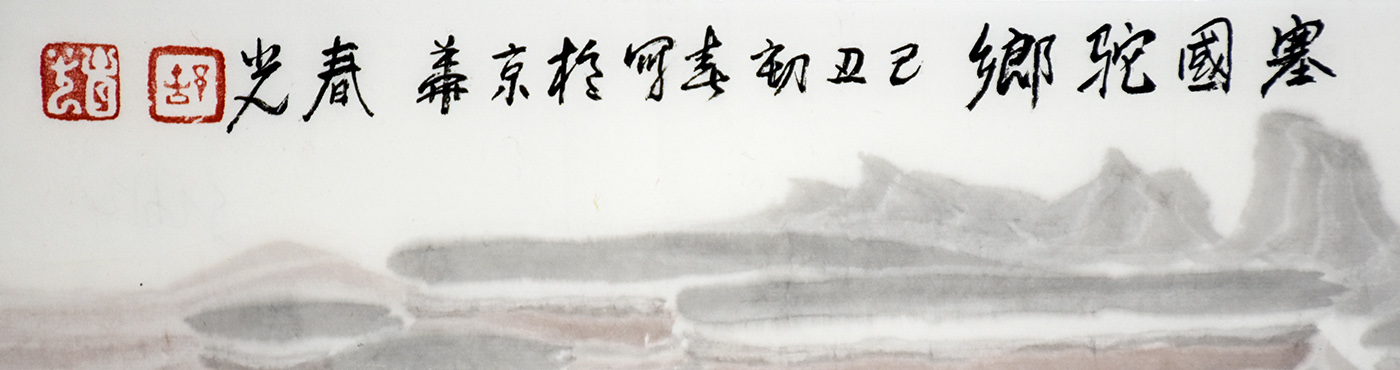 塞國駝鄉 己丑初春寫於京華 春光